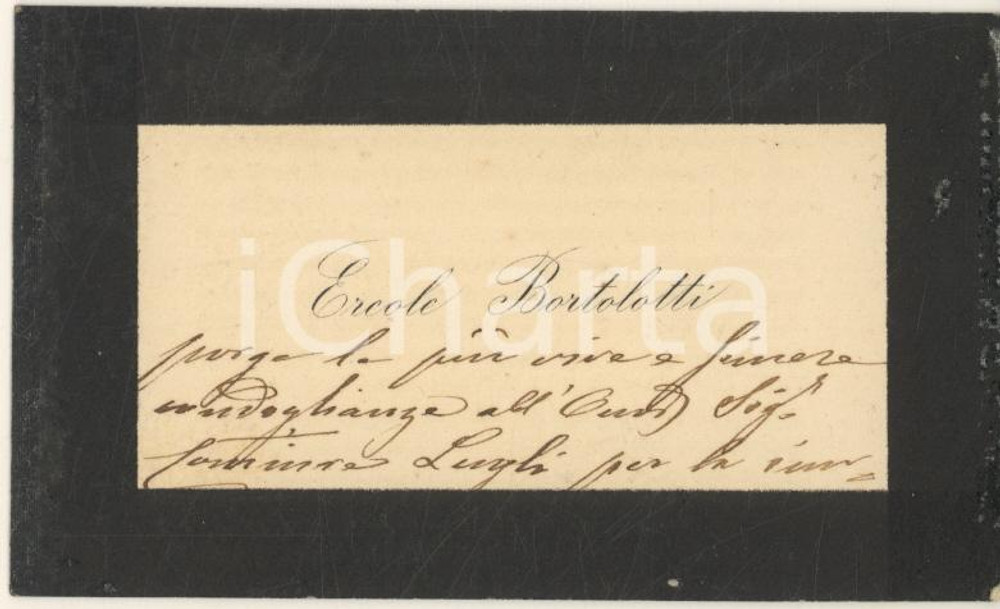 iCharta
Ercole Bortolotti
porge le più vive e sincere
condoglianze all'Onor Sigr
Lugli per la